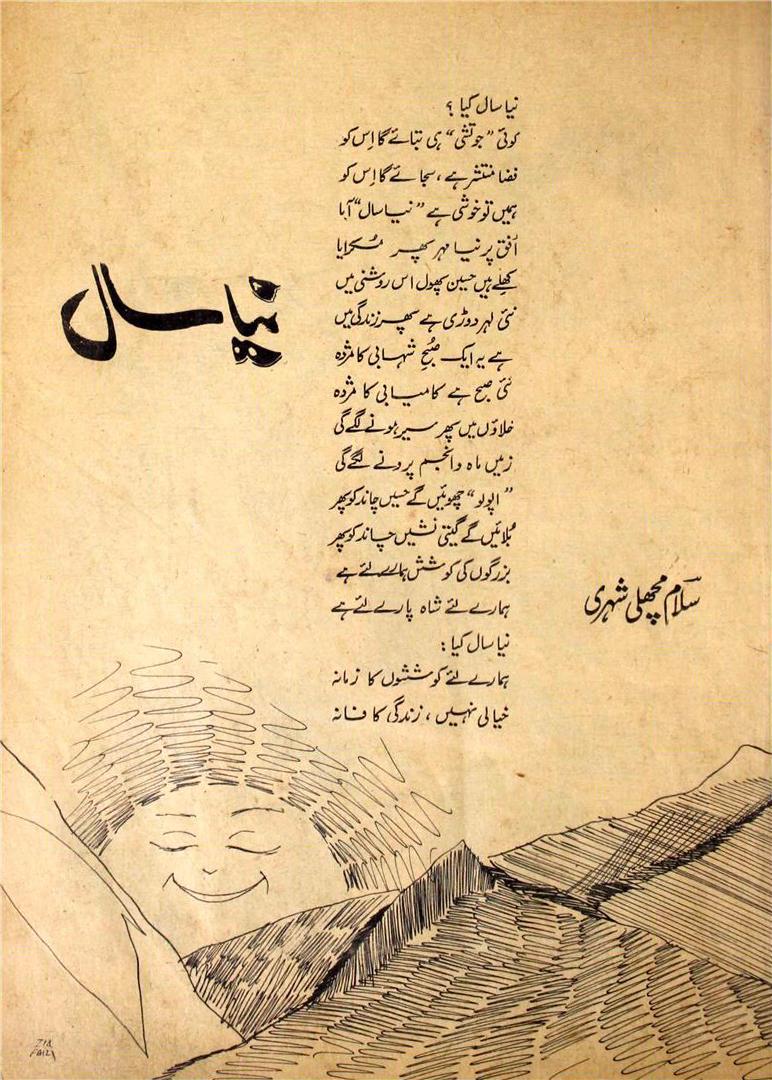 نیا سال
سلام مچھلی شہری
نیا سال کیا ؟
کوئی "جوتشی" ہی بتائے گا اِس کو
فضا منتشر ہے، سجائے گا اِس کو
ہمیں تو خوشی ہے "نیا سال" آیا
اُفق پر نیا مہر پھر مُسکرایا
کھِلے ہیں حسین پھول اس روشنی میں
نئی لہر دوڑی ہے پھر زندگی میں
ہے یہ ایک صُبحِ شہابی کا مژدہ
نئی صبح ہے کامیابی کا مژدہ
خلاؤں میں پھر سیر ہونے لگے گی
زمیں ماہ و انجم پرونے لگے گی
"اپولو" چھوئیں گے حسیں چاند کو پھر
بُلائیں گے گیتی نشیں چاند کو پھر
بزرگوں کی کوشش ہمارے لئے ہے
ہمارے لئے شاہ پارے لئے ہے
نیا سال کیا :
ہمارے لئے کوششوں کا زمانہ
خیالی نہیں، زندگی کا فسانہ